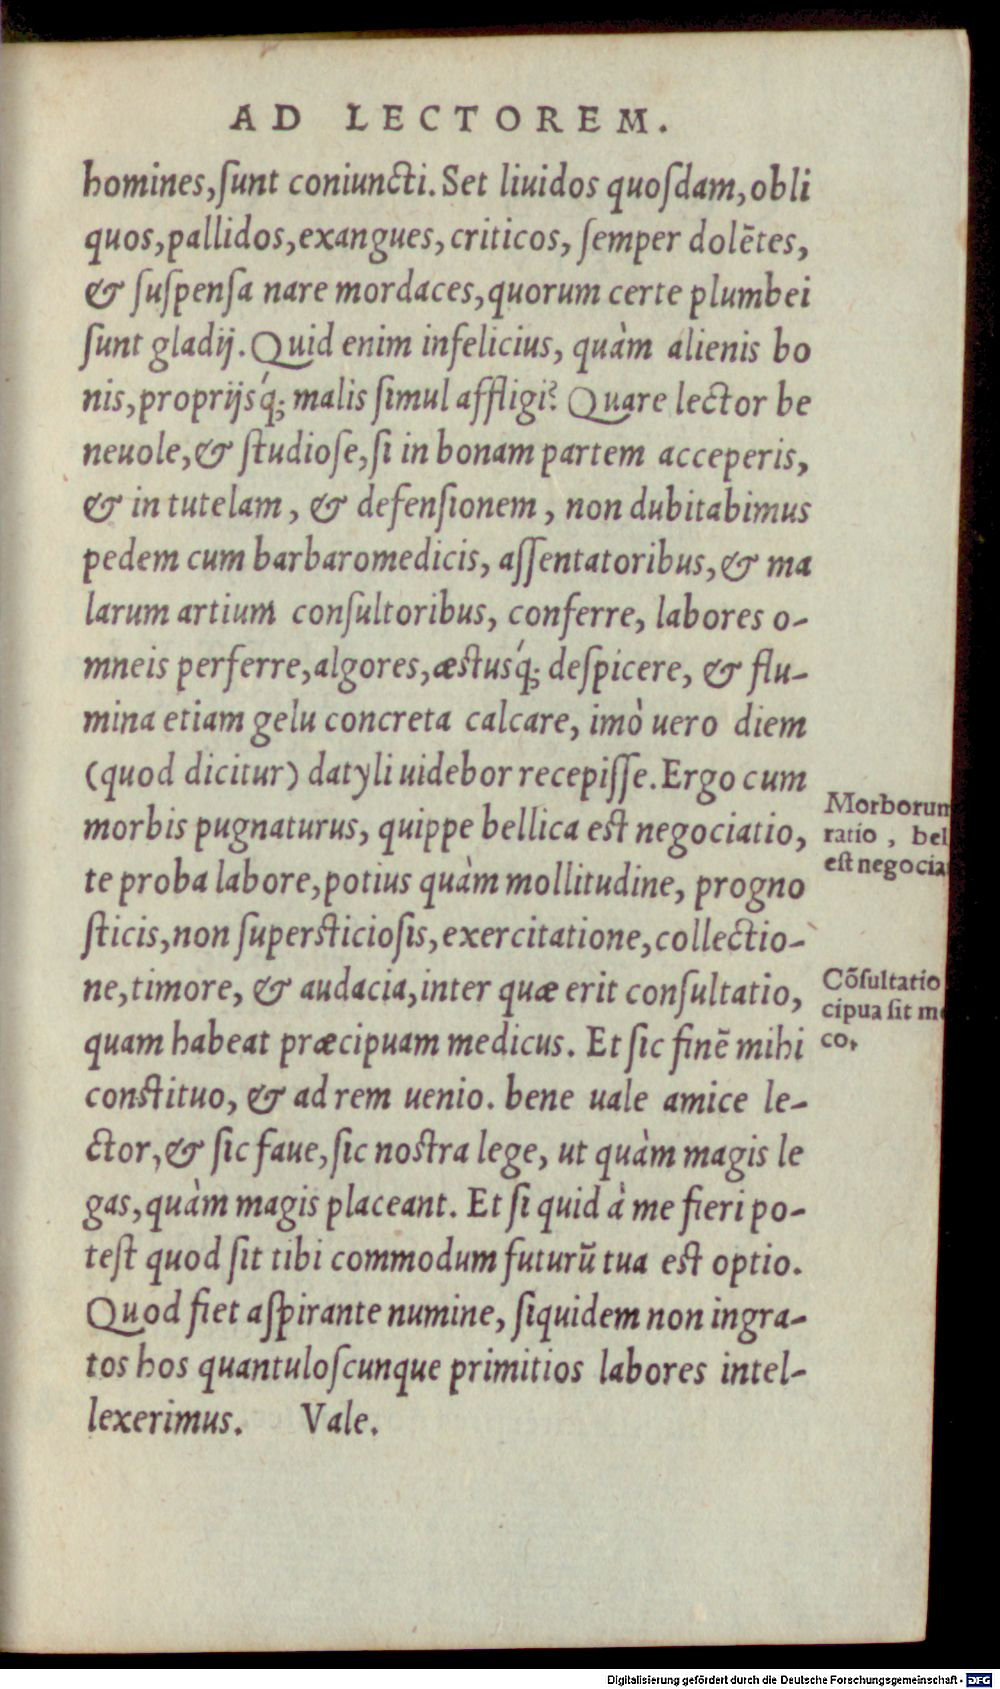 AD LECTOREM.
homines, ſunt coniuncti. Set liuidos quoſdam, obli
quos, pallidos, exangues, criticos, ſemper dolẽtes,
& ſuſpenſa nare mordaces, quorum certe plumbei
ſunt gladij. Quid enim infelicius, quàm alienis bo
nis, proprijsq́; malis ſimul affligi? Quare lector be
neuole, & ſtudioſe, ſi in bonam partem acceperis,
& in tutelam, & defenſionem, non dubitabimus
pedem cum barbaromedicis, aſſentatoribus, & ma
larum artium conſultoribus, conferre, labores o-
mneis perferre, algores, æstusq́; deſpicere, & flu-
mina etiam gelu concreta calcare, imò uero diem
(quod dicitur) datyli uidebor recepiſſe. Ergo cum
morbis pugnaturus, quippe bellica est negociatio,
te proba labore, potius quàm mollitudine, progno
ſticis, non superſticioſis, exercitatione, collectio-
ne, timore, & audacia, inter quæ erit conſultatio,
quam habeat præcipuam medicus. Et ſic finẽ mihi
constituo, & ad rem uenio. bene uale amice le-
ctor, & ſic faue, ſic nostra lege, ut quàm magis le
gas, quàm magis placeant. Et ſi quid à me fieri po-
teſt quod ſit tibi commodum futurũ tua est optio.
Quod fiet aſpirante numine, ſiquidem non ingra-
tos hos quantuloſcunque primitios labores intel-
lexerimus. Vale.
Morborum
ratio, bel
eſt negocia
Cõſultatio
cipua ſit me
co,
Digitalisierung gefördert durch die Deutsche Forschungsgemeinschaft - DFG